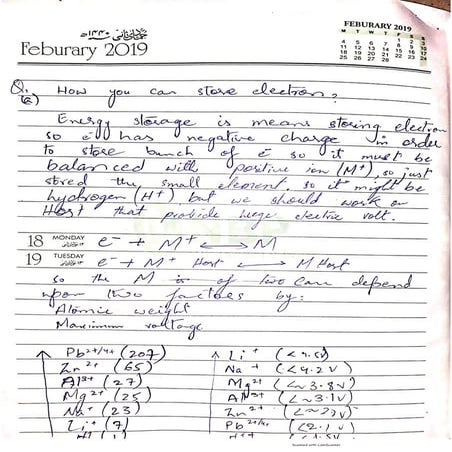 FEBURARY 2019
M T W T F S S
1 2 3
4 5 6 7 8 9 10
11 12 13 14 15 16 17
18 19 20 21 22 23 24
25 26 27 28
Feburary 2019
Q. How you can store electron?
Energy storage is means storing electron
so e⁻ has negative charge in order
to store bunch of e⁻ so it must be
balanced with positive ion (M⁺), so just
stored the small element. so it might be
hydrogen (H⁺) but we should work on
Host that provide huge electric volt.
18 MONDAY e⁻ + M⁺ ⟷ M
19 TUESDAY e⁻ + M⁺ Host ⟷ M Host
so the M is of two can depend
upon two factors by:
Atomic weight
Maximum voltage
Pb²⁺/⁴⁺ (207)
Zn²⁺ (65)
Al³⁺ (27)
Mg²⁺ (25)
Na⁺ (23)
Li⁺ (7)
Li⁺
Na⁺ (<4.2v)
Mg²⁺ (<~3.8v)
Al³⁺ (<~3.1v)
Zn²⁺
Pb²⁺/⁴⁺ (<2.1v)
Scanned with CamScanner